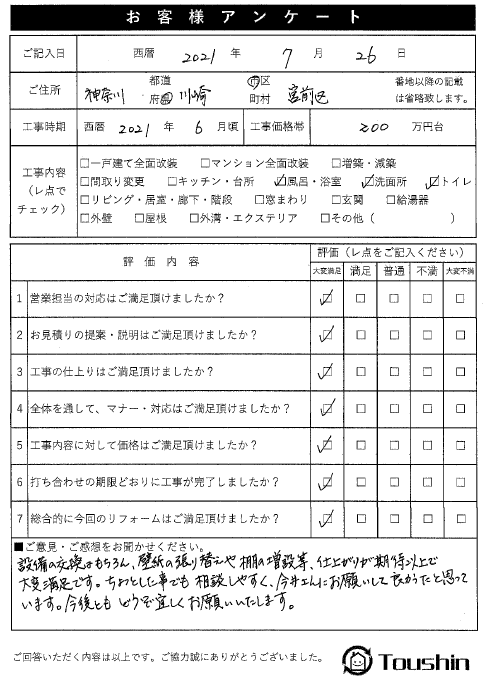 お客様アンケート
ご記入日 西暦 2021 年 7 月 26 日
ご住所 神奈川 都道府県 川崎 市区町村 宮前区 番地以降の記載は省略致します。
工事時期 西暦 2021 年 6 月頃 工事価格帯 200 万円台
工事内容（レ点でチェック）
□一戸建て全面改装 □マンション全面改装 □増築・減築
□間取り変更 □キッチン・台所 ☑風呂・浴室 ☑洗面所 ☑トイレ
□リビング・居室・廊下・階段 □窓まわり □玄関 □給湯器
□外壁 □屋根 □外溝・エクステリア □その他（ ）
評価内容 評価（レ点をご記入ください）
大変満足 満足 普通 不満 大変不満
1 営業担当の対応はご満足頂けましたか？ ☑ □ □ □ □
2 お見積りの提案・説明はご満足頂けましたか？ ☑ □ □ □ □
3 工事の仕上りはご満足頂けましたか？ ☑ □ □ □ □
4 全体を通して、マナー・対応はご満足頂けましたか？ ☑ □ □ □ □
5 工事内容に対して価格はご満足頂けましたか？ ☑ □ □ □ □
6 打ち合わせの期限どおりに工事が完了しましたか？ ☑ □ □ □ □
7 総合的に今回のリフォームはご満足頂けましたか？ ☑ □ □ □ □
■ご意見・ご感想をお聞かせください。
設備の交換はもちろん、壁紙の張り替えや棚の増設等、仕上がりが期待以上で
大変満足です。ちょっとした事でも相談しやすく、今井さんにお願いして良かったと思って
います。今後ともどうぞ宜しくお願いいたします。
ご回答いただく内容は以上です。ご協力誠にありがとうございました。
Toushin